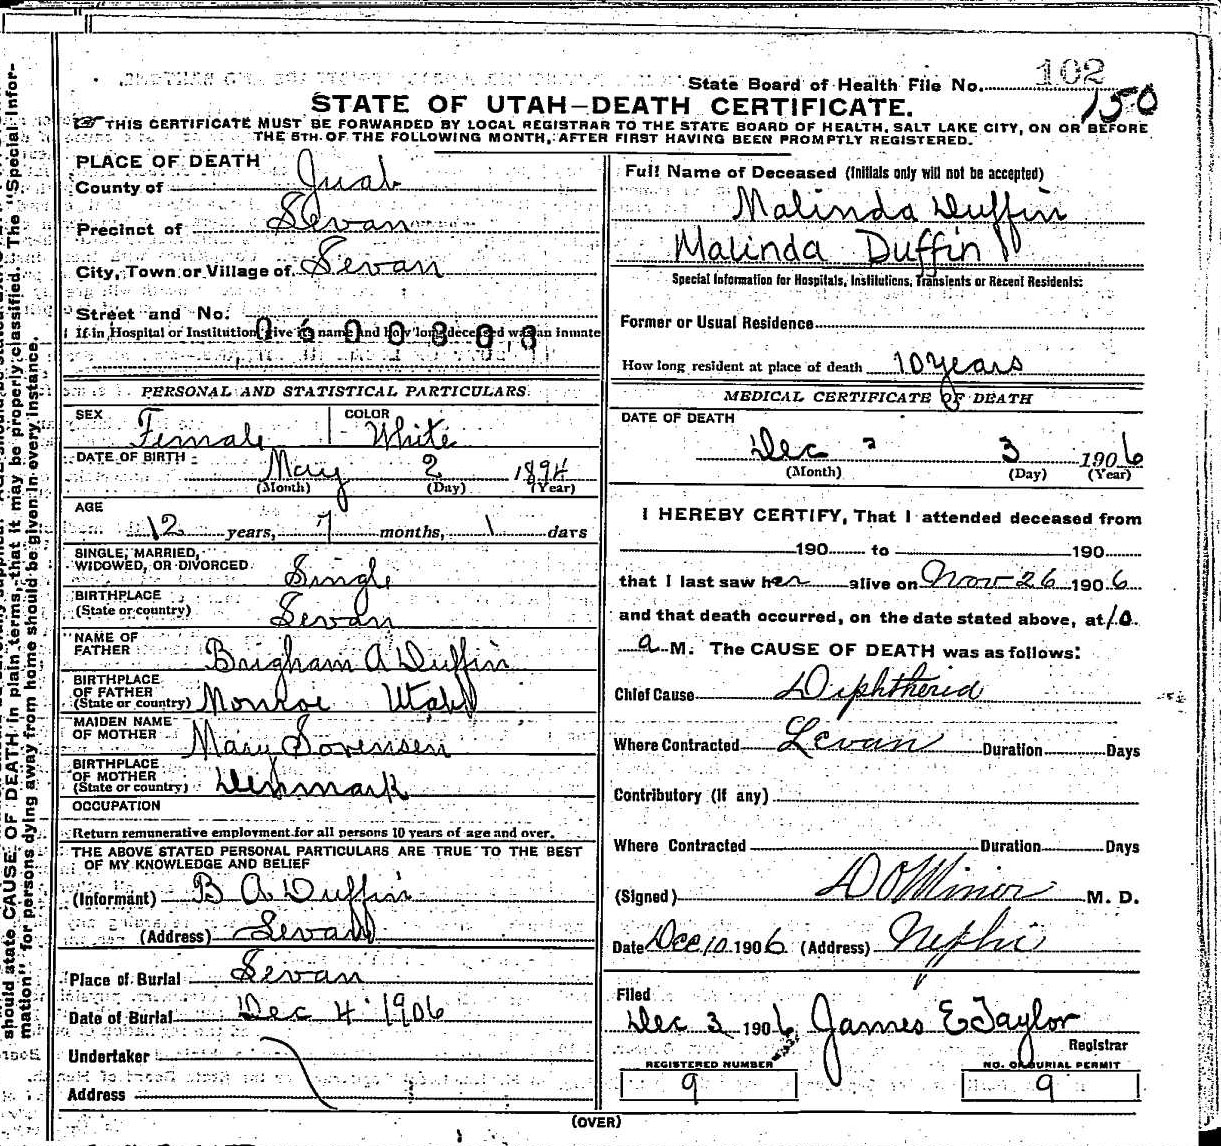 State Board of Health File No. 102
150
STATE OF UTAH—DEATH CERTIFICATE.
THIS CERTIFICATE MUST BE FORWARDED BY LOCAL REGISTRAR TO THE STATE BOARD OF HEALTH, SALT LAKE CITY, ON OR BEFORE
THE 5TH OF THE FOLLOWING MONTH, AFTER FIRST HAVING BEEN PROMPTLY REGISTERED.
PLACE OF DEATH
County of Juab
Precinct of Levan
City, Town or Village of Levan
Street and No.
If in Hospital or Institution give its name and how long deceased was an inmate
0600808
PERSONAL AND STATISTICAL PARTICULARS
SEX Female COLOR White
DATE OF BIRTH May 2 1894
(Month) (Day) (Year)
AGE
12 years, 7 months, 1 days
SINGLE, MARRIED,
WIDOWED, OR DIVORCED Single
BIRTHPLACE
(State or country) Levan
NAME OF
FATHER Brigham A Duffin
BIRTHPLACE
OF FATHER
(State or country) Monroe Utah
MAIDEN NAME
OF MOTHER Mary Sorensen
BIRTHPLACE
OF MOTHER
(State or country) Denmark
OCCUPATION
Return remunerative employment for all persons 10 years of age and over.
THE ABOVE STATED PERSONAL PARTICULARS ARE TRUE TO THE BEST
OF MY KNOWLEDGE AND BELIEF
(Informant) B A Duffin
(Address) Levan
Place of Burial Levan
Date of Burial Dec 4 1906
Undertaker
Address
Full Name of Deceased (Initials only will not be accepted)
Malinda Duffin
Malinda Duffin
Special Information for Hospitals, Institutions, Transients or Recent Residents:
Former or Usual Residence
How long resident at place of death 10 years
MEDICAL CERTIFICATE OF DEATH
DATE OF DEATH
Dec 3 1906
(Month) (Day) (Year)
I HEREBY CERTIFY, That I attended deceased from
190 to 190
that I last saw her alive on Nov 26 1906
and that death occurred, on the date stated above, at 10
a M. The CAUSE OF DEATH was as follows:
Chief Cause Diphtheria
Where Contracted Levan Duration Days
Contributory (if any)
Where Contracted Duration Days
(Signed) D O Miner M. D.
Date Dec 10 1906 (Address) Nephi
Filed
Dec 3 1906 James E Taylor
Registrar
REGISTERED NUMBER
9
NO. OF BURIAL PERMIT
9
(OVER)
should state CAUSE OF DEATH in plain terms, that it may be properly classified. The "Special Infor-
mation" for persons dying away from home should be given in every instance.